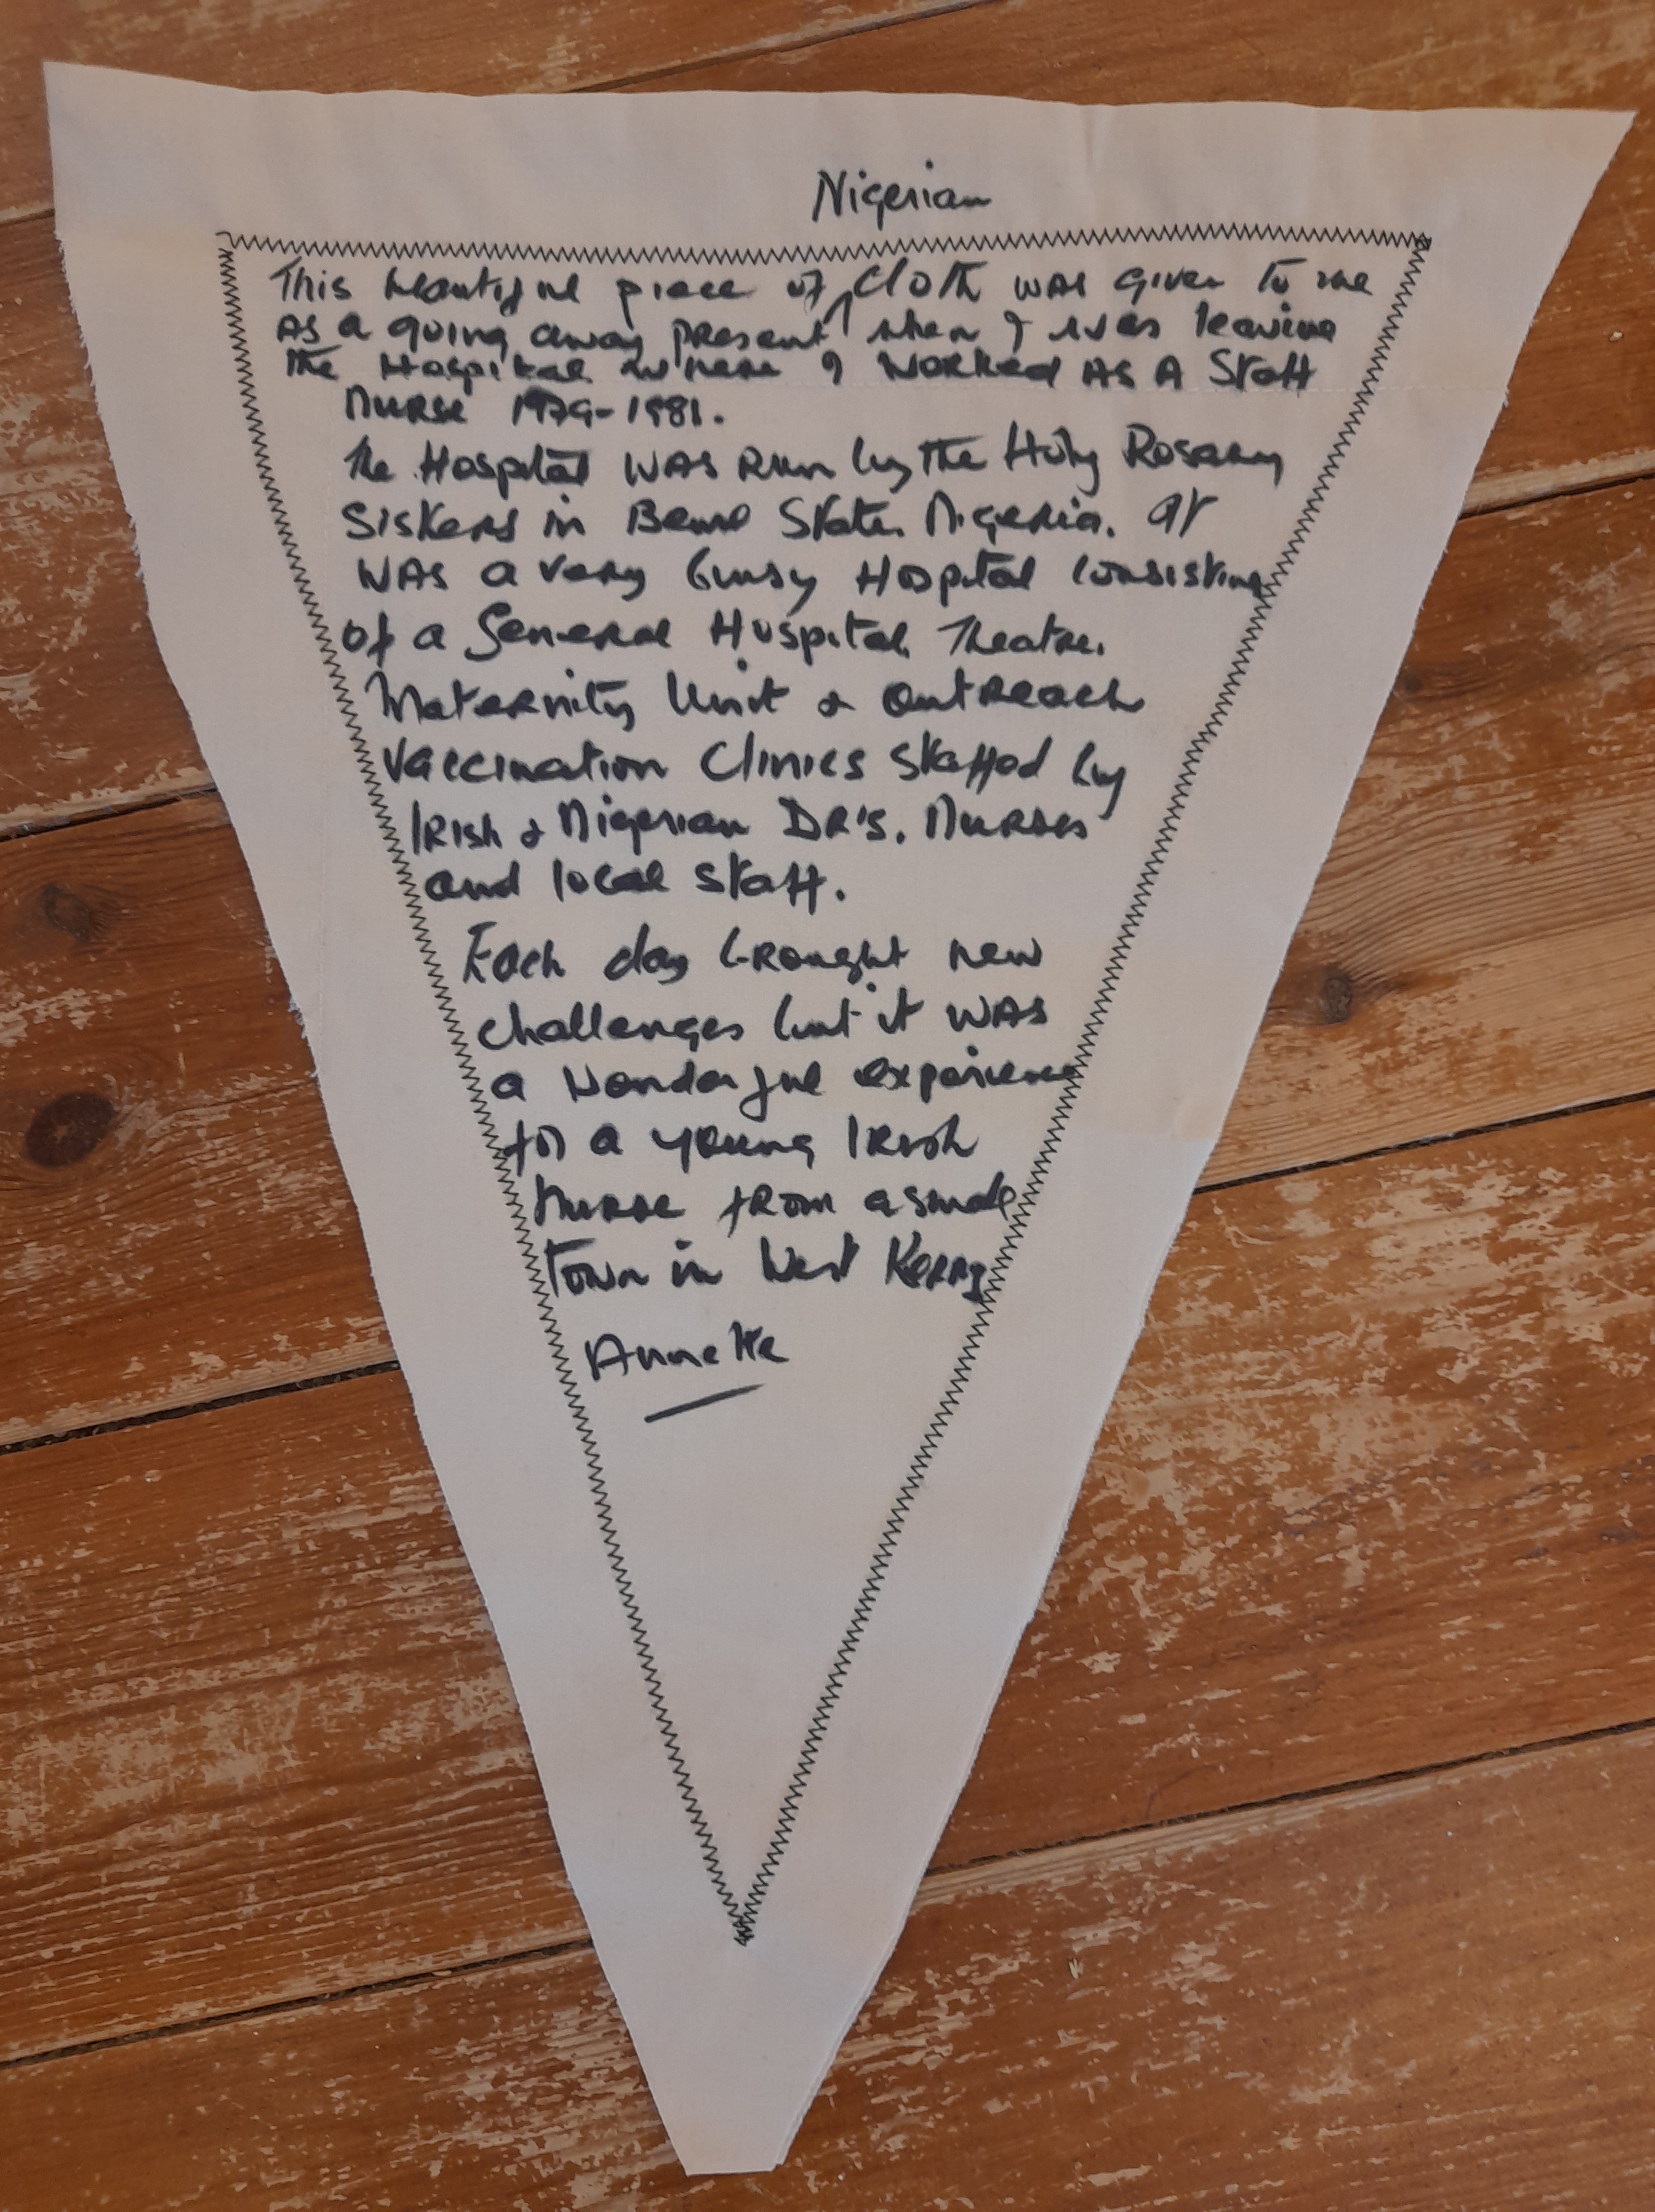 Nigerian
This beautiful piece of cloth was given to me
As a going away present when I was leaving
the Hospital where I worked As A Staff
Nurse 1979-1981.
The Hospital WAS Run by the Holy Rosary
Sisters in Benue State. Nigeria. It
WAS a very busy Hospital consisting
of a General Hospital. Theatre.
Maternity Unit & Outreach
Vaccination Clinics staffed by
Irish & Nigerian DR's. Nurses
and local staff.
Each day brought new
challenges but it WAS
a wonderful experience
for a young Irish
Nurse from a small
town in West Kerry
Annette